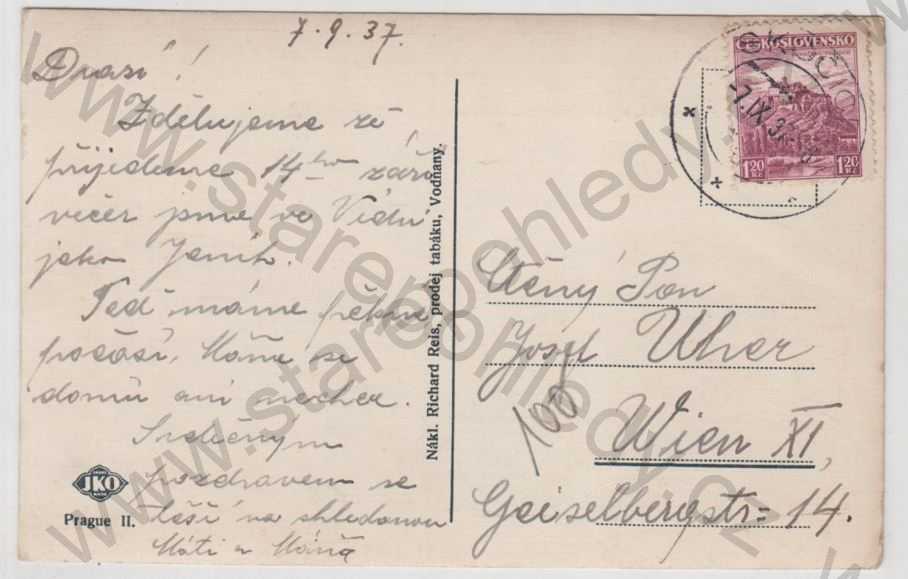 7.9.37.
Drazí!
Zdělujeme že
přijedeme 14ho září
večer jsme ve Vídni
jako Jeník.
Teď máme pěkné
počasí, Máňa se
domů ani nechce.
Srdečným
pozdravem se
těší na shledanou
Máti a Máňa
JKO
Prague II.
Nákl. Richard Reis, prodej tabáku, Vodňany.
ČESKOSLOVENSKO
1·20 Kč 1·20 Kč
-7.IX.37
Ctěný Pan
Josef Uher
100
Wien XI,
Geiselbergstr= 14.
www.starepohledy.cz